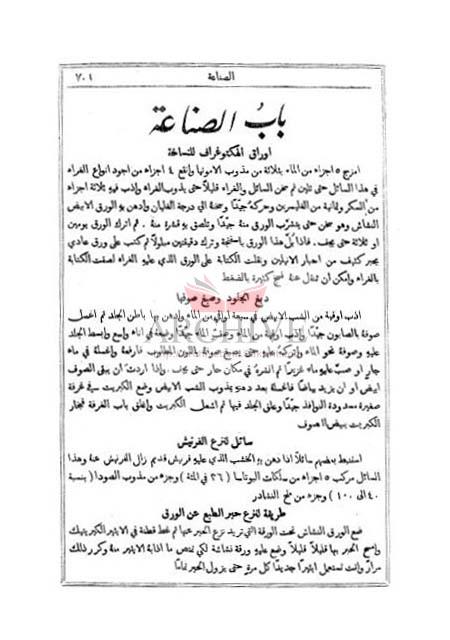 الصناعة
٧٠١
باب الصناعة
اوراق الهكتوغراف للنساخة
امزج ٥ اجزاء من الماء بثلاثة من مذوب الامونيا وانقع ٤ اجزاء من اجود انواع الغراء
في هذا السائل حتى تلين ثم سخن السائل والغراء قليلاً حتى يذوب الغراء واذب فيه ثلاثة اجزاء
من السكر وثمانية من الغليسرين وحركه جيدًا وسخنه الى درجة الغليان وادهن به الورق الابيض
النشاش وهو سخن حتى يتشرب الورق منه جيدًا وتلتصق به قشرة منه . ثم اترك الورق يومين
او ثلاثة حتى يجف . فاذا بُلّ هذا الورق باسفنجة وترك دقيقتين مبلولاً ثم كتب على ورق عادي
بحبر كثيف من احبار الانيلين ونقلت الكتابة على الورق الذي عليه الغراء لصقت الكتابة
بالغراء وامكن ان تنقل عنه نسخ كثيرة بالضغط
دبغ الجلود وصبغ صوفها
اذب اوقية من الشب الابيض في سبعة اواقي من الماء وادهن بها باطن الجلد ثم اغسل
صوفة بالصابون جيدًا اذب اوقية من الماء وسخن الماء جيدًا وصبه في اناء واسع وابسط الجلد
عليه وصوفة نحو الماء واتركه عليه حتى يصبغ صوفة باللون المطلوب فارفعه واغسله في ماء
جارٍ او صب عليه ماء غزيرًا ثم انشره في مكان حار حتى يجف . واذا اردت ان يبقى الصوف
ابيض او ان يزيد بياضًا فاغسله بعد دهنه بمذوب الشب الابيض وضع الكبريت في غرفة
صغيرة مسدودة النوافذ جيدًا وعلق الجلد فيها ثم اشعل الكبريت واغلق باب الغرفة فبخار
الكبريت يبيض الصوف
سائل لنزع الفرنيش
استنبط بعضهم سائلاً اذا دهن به الخشب الذي عليه فرنيش قديم زال الفرنيش عنه وهذا
السائل مركب ٥ اجزاء من سلكات البوتاسا (٣٦ في المئة) وجزء من مذوب الصودا (بنسبة
٤٠ الى ١٠٠) وجزء من ملح النشادر
طريقة لنزع حبر الطبع عن الورق
ضع الورق النشاش تحت الورقة التي تريد نزع الحبر عنها ثم غط قطنة في الايثير الكبريتيك
وامسح الحبر بها قليلاً قليلاً وضع عليه ورقة نشاشة لكي تمتص ما اذابه الايثير منه وكرر ذلك
مرارًا وانت تستعمل ايثيرًا جديدًا كل مرة حتى يزول الحبر تمامًا
ARCHIVE